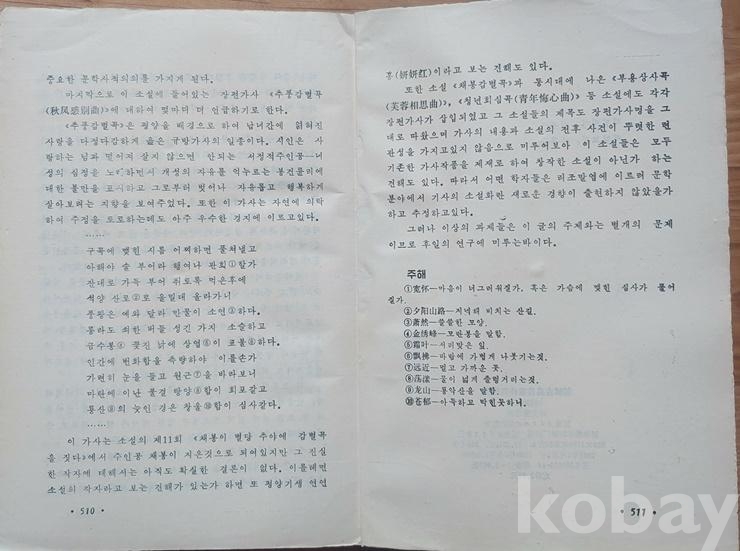 중요한 문학사적의의를 가지게 된다.
마지막으로 이 소설에 들어있는 장편가사 《추풍감별곡
(秋风感别曲)》에 대하여 몇마디 더 언급하기로 한다.
《추풍감별곡》은 평양을 배경으로 하여 남녀간에 얽혀진
사랑을 다정다감하게 읊은 규방가사의 일종이다. 시인은 사
랑하는 님과 떨어져 살지 않으면 안되는 서정적주인공―녀
성의 심정을 노래하면서 개성의 자유를 억누르는 봉건륜리에
대한 불만을 표시하고 그로부터 벗어나 자유롭고 행복하게
살아보려는 지향을 보여주었다. 또한 이 가사는 자연에 의탁
하여 주정을 토로하는데도 아주 우수한 경지에 이르고있다.
……
구곡에 맺힌 시름 어찌하면 풀쳐낼고
아해야 술 부어라 행여나 관회①할가
잔대로 가득 부어 취토록 먹은후에
석양 산로②로 을밀대 올라가니
풍광은 예와 달라 만물이 소연③하다.
릉라도 쇠한 버들 성긴 가지 소슬하고
금수봉④ 꽃진 낡에 상엽⑤이 표불⑥하다.
인간에 변화함을 측량하야 이를손가
가련히 눈을 들고 원근⑦을 바라보니
마탄에 이난 물결 탕양⑧함이 회포같고
룡산⑨의 늦인 경은 창울⑩함이 심사같다.
……
이 가사는 소설의 제11회 《채봉이 별당 추야에 감별곡
을 짓다》에서 주인공 채봉이 지은것으로 되여있지만 그 진실
한 작자에 대해서는 아직도 확실한 결론이 없다. 이를테면
소설의 작자라고 보는 견해가 있는가 하면 또 평양기생 연연
• 510 •
홍(妍妍红)이라고 보는 견해도 있다.
또한 소설 《채봉감별곡》과 동시대에 나온 《부용상사곡
(芙蓉相思曲)》, 《청년회심곡(青年悔心曲)》 등 소설에도 각각
장편가사가 삽입되였고 그 소설들의 제목도 장편가사명을 그
대로 따랐으며 가사의 내용과 소설의 전후 사건이 뚜렷한 련
관성을 가지고있지 않음으로 미루어보아 이 소설들은 모두
기존한 가사작품을 제재로 하여 창작한 소설이 아닌가 하는
견해도 있다. 따라서 어떤 학자들은 리조말엽에 이르러 문학
분야에서 가사의 소설화란 새로운 경향이 출현하지 않았을가
하고 추정하고있다.
그러나 이상의 과제들은 이 글의 주제와는 별개의 문제
이므로 후일의 연구에 미루는바이다.
주해
①宽怀―마음이 너그러워질가, 혹은 가슴에 맺힌 심사가 풀어
질가.
②夕阳山路―저녁해 비치는 산길.
③萧然―쓸쓸한 모양.
④金绣峰―모란봉을 말함.
⑤霜叶―서리맞은 잎.
⑥飘拂―바람에 가볍게 나붓기는것.
⑦远近―멀고 가까운 곳.
⑧荡漾―물이 넓게 출렁거리는것.
⑨龙山―룡악산을 말함.
⑩苍郁―아득하고 막힌듯하니.
• 511 •
kobay